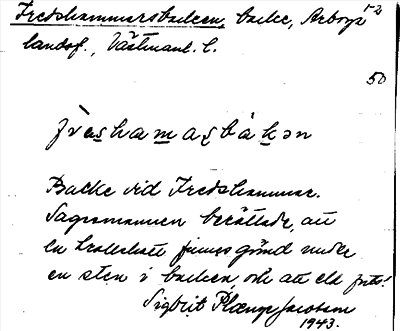 Fredshammarsbacken, backe, Arboga 12
landsf., Västmanl. l.
50
Backe vid Fredshammar.
Sagesmannen berättade, att
en trollskatt finnes gömd under
en sten i backen, och att eld
Sigbrit Plænge Jacobson
1943.